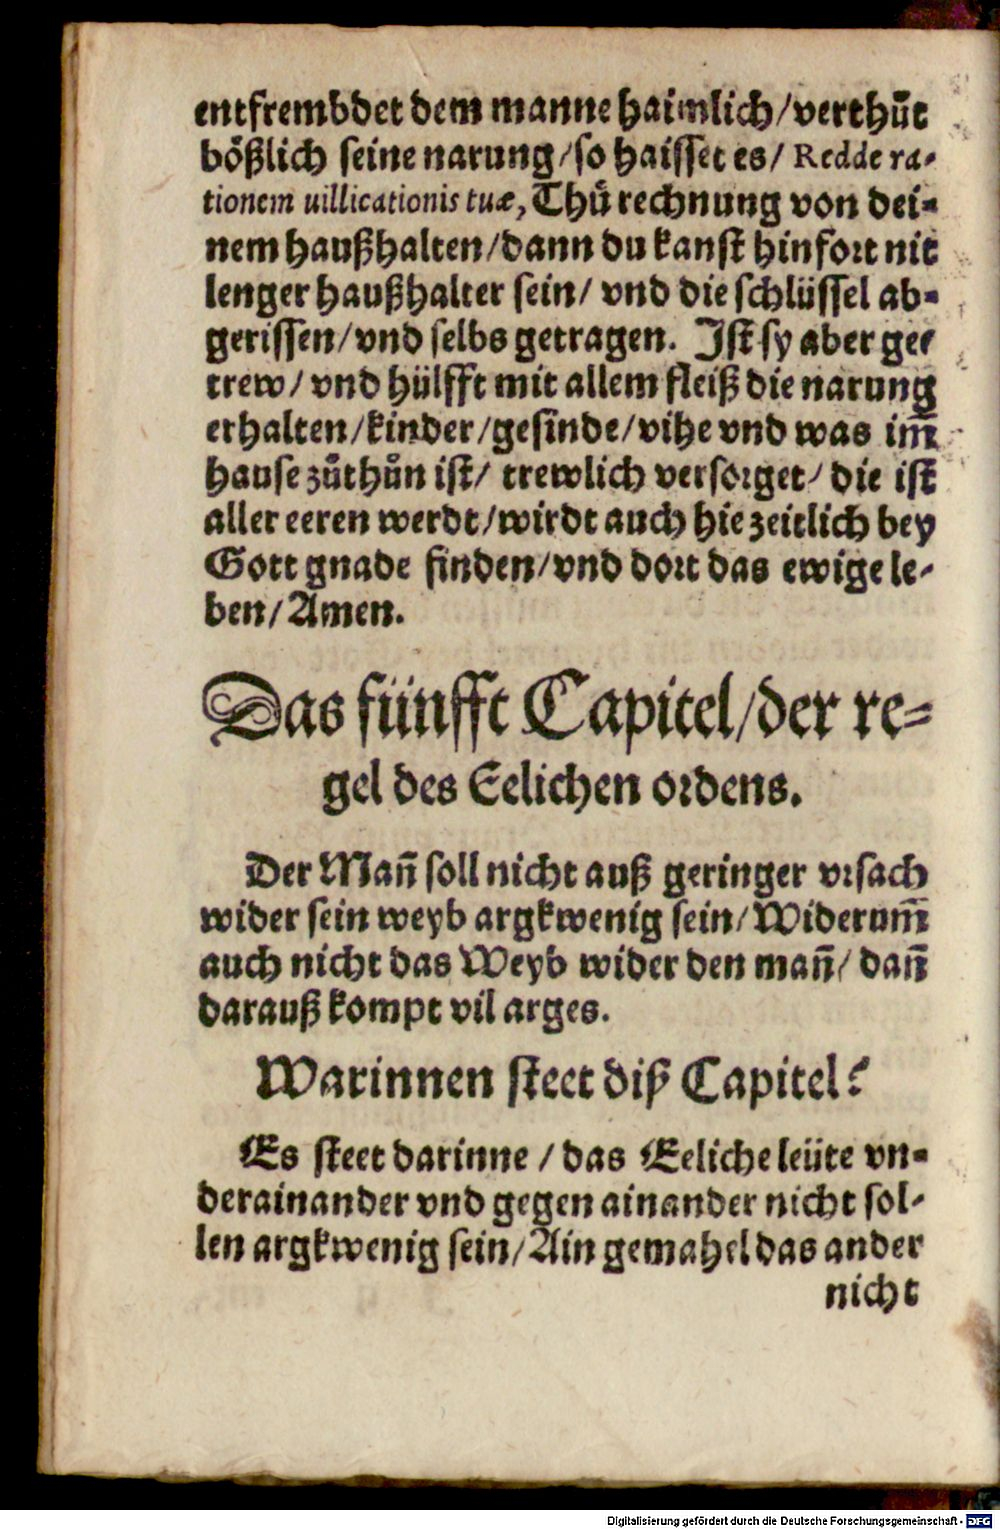 entfrembdet dem manne haimlich/verthuͦt
boͤßlich seine narung/so haisset es/ Redde ra-
tionem uillicationis tuæ, Thuͦ rechnung von dei=
nem haußhalten/dann du kanst hinfort nit
lenger haußhalter sein/ vnd die schlüssel ab=
gerissen/vnd selbs getragen. Ist sy aber ge-
trew/ vnd hülfft mit allem fleiß die narung
erhalten/kinder/gesinde/vihe vnd was im̄
hause zuͦthuͦn ist/ trewlich versorget/ die ist
aller eeren werdt/wirdt auch hie zeitlich bey
Gott gnade finden/vnd dort das ewige le-
ben/Amen.
Das fünfft Capitel/der re=
gel des Eelichen ordens.
Der Man̄ soll nicht auß geringer vrsach
wider sein weyb argkwenig sein/Widerum̄
auch nicht das Weyb wider den man̄/ dan̄
darauß kompt vil arges.
Warinnen steet diß Capitel?
Es steet darinne /das Eeliche leüte vn=
derainander vnd gegen ainander nicht sol-
len argkwenig sein/Ain gemahel das ander
nicht
Digitalisierung gefördert durch die Deutsche Forschungsgemeinschaft - DFG